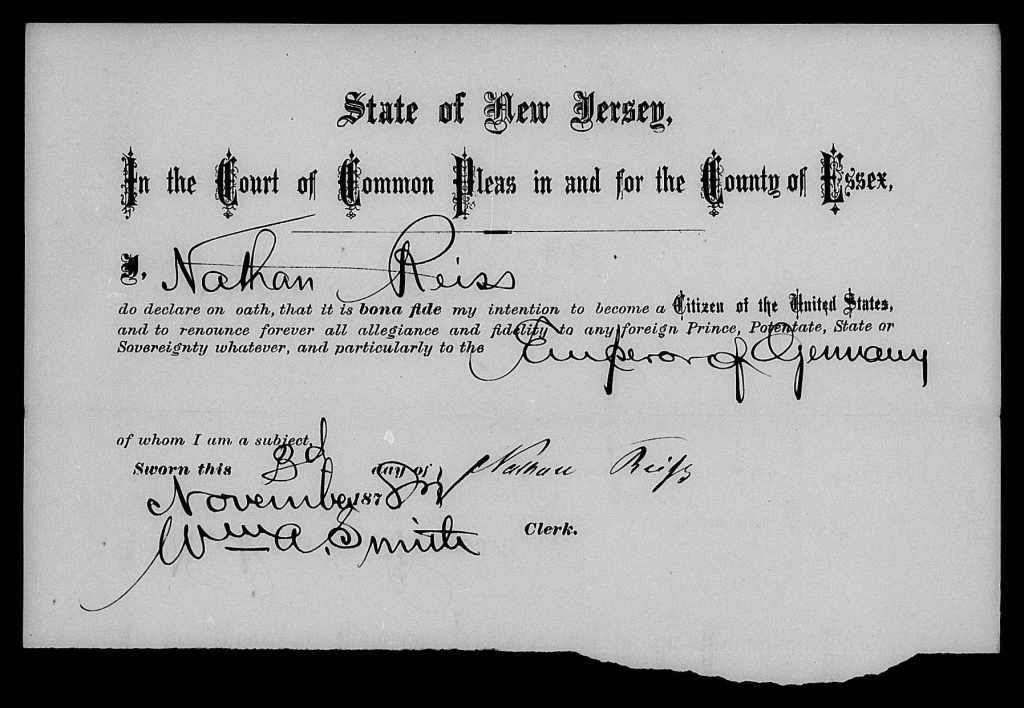 State of New Jersey,
In the Court of Common Pleas in and for the County of Essex,
I, Nathan Reiss
do declare on oath, that it is bona fide my intention to become a Citizen of the United States,
and to renounce forever all allegiance and fidelity to any foreign Prince, Potentate, State or
Sovereignty whatever, and particularly to the Emperor of Germany
of whom I am a subject,
Sworn this 3d day of Nathan Reiss
November 187
Wm A. Smith Clerk.